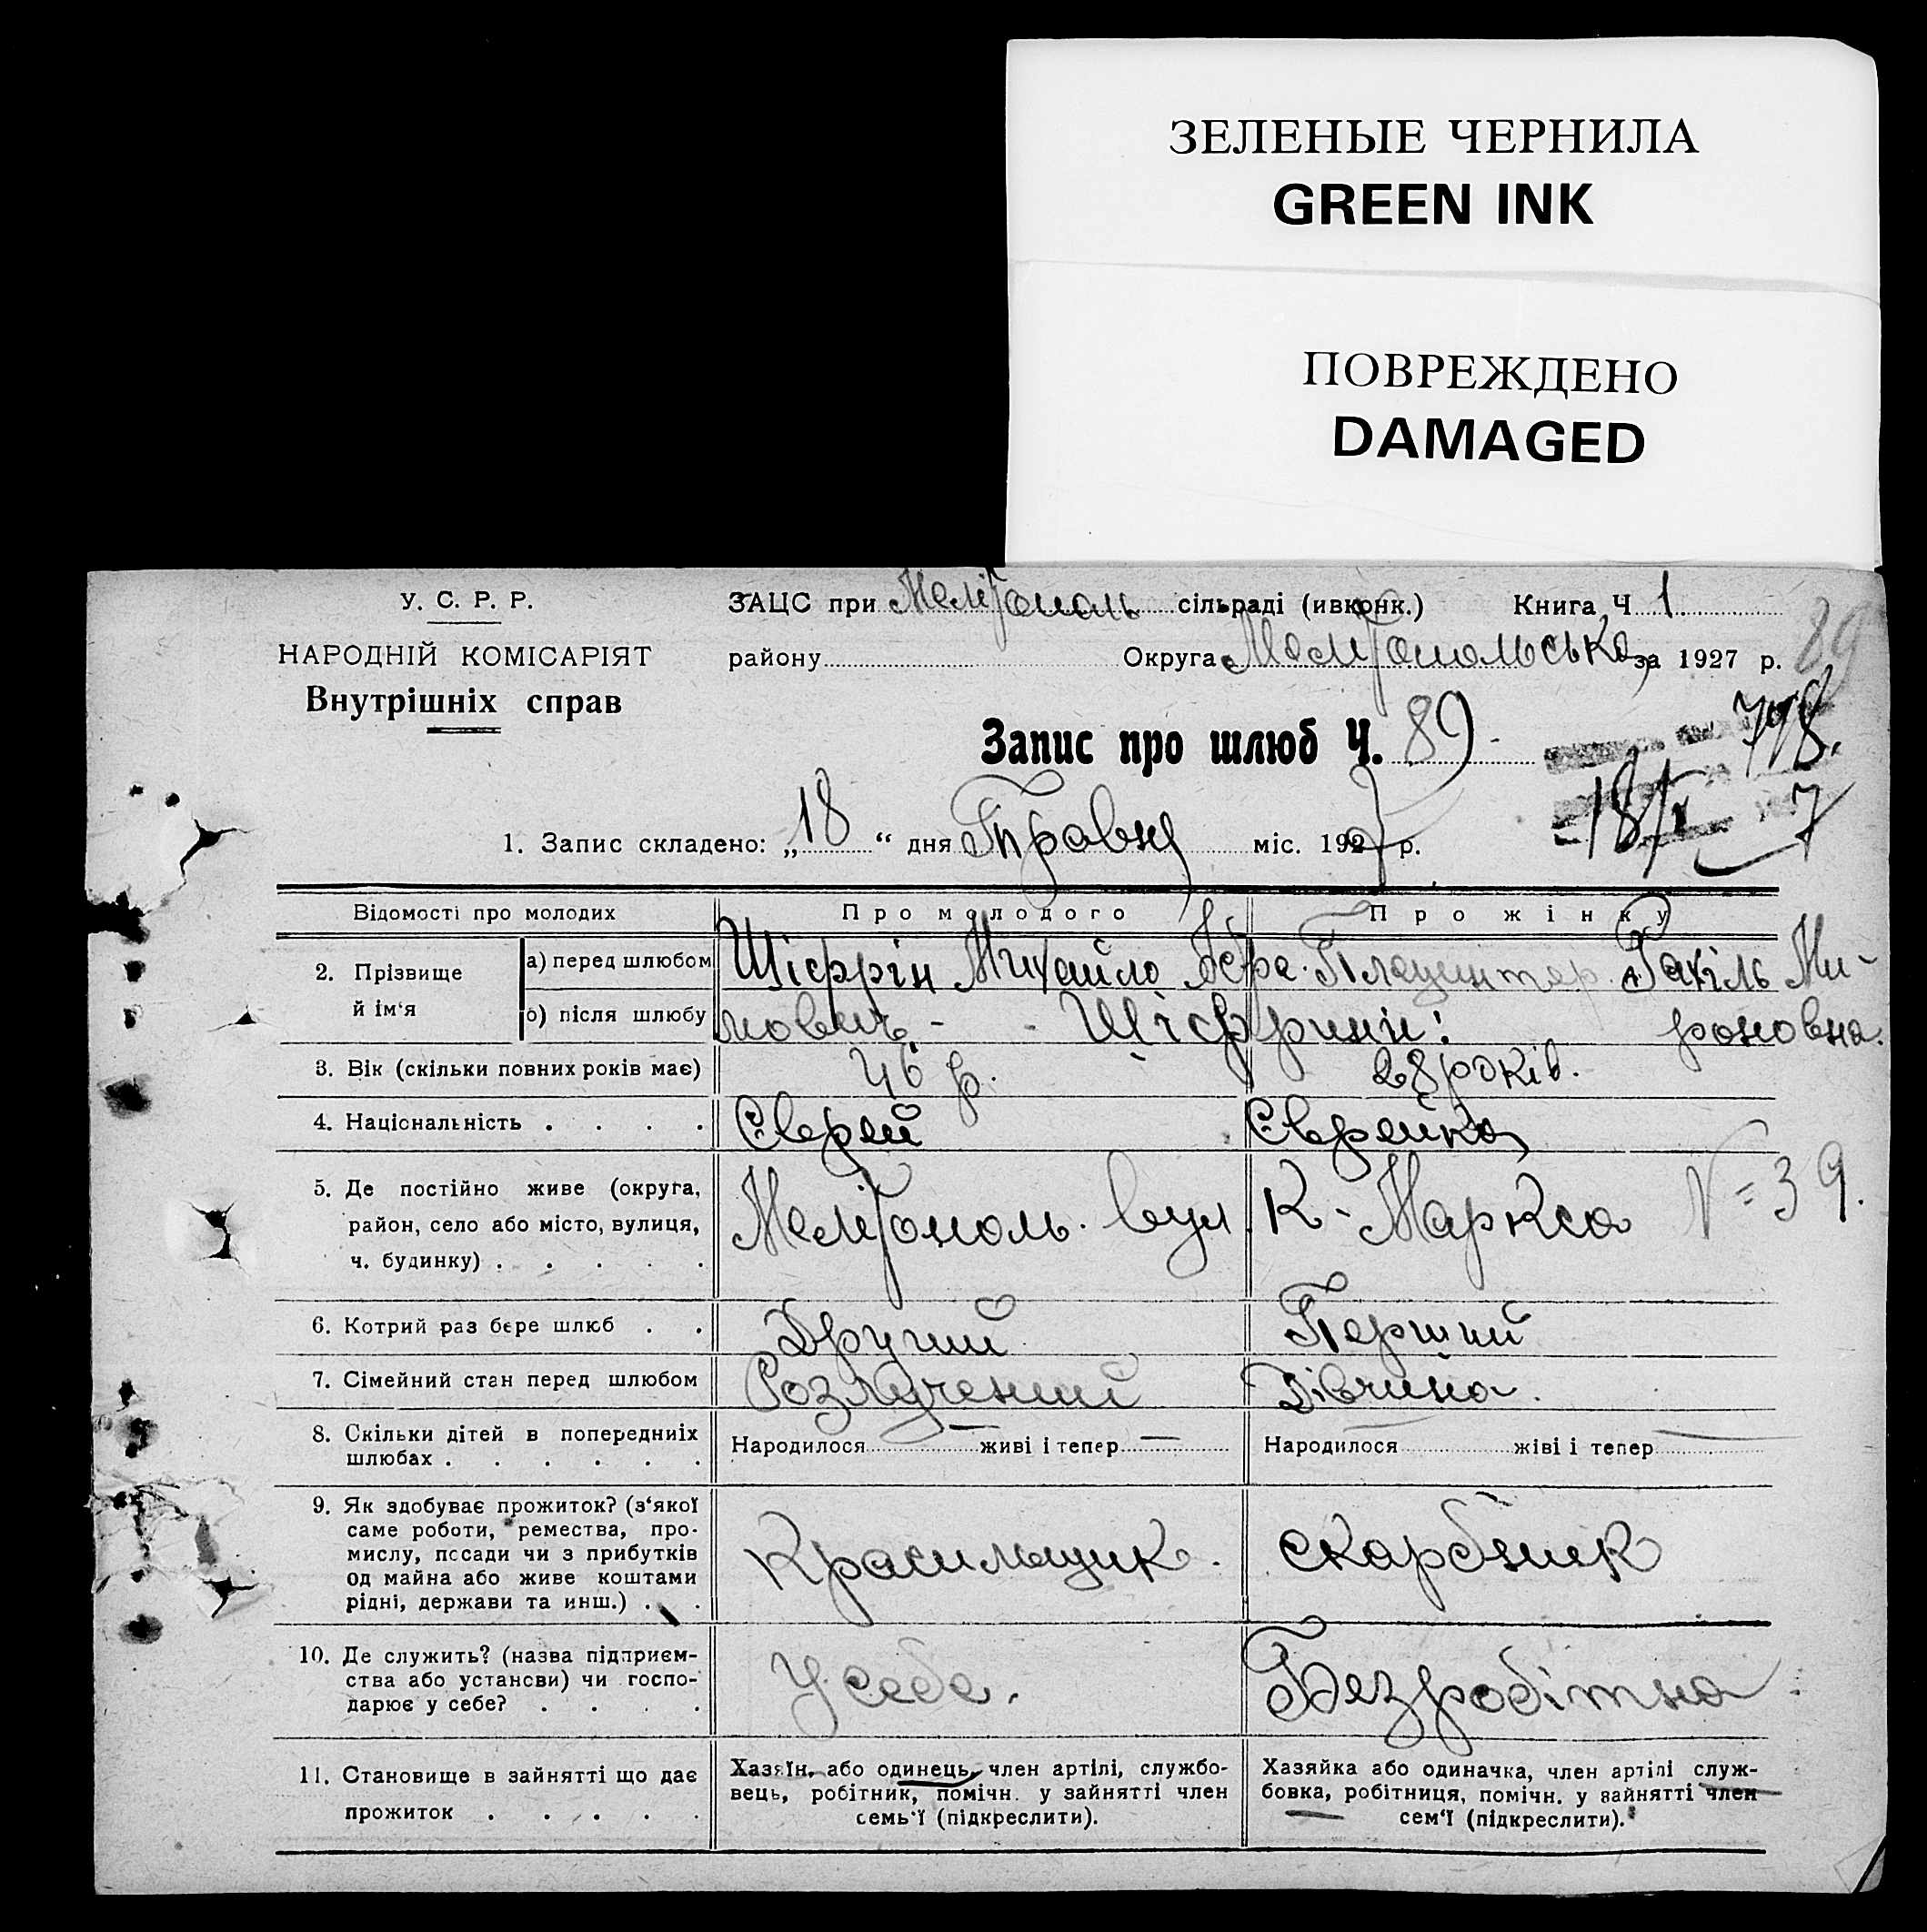 ЗЕЛЕНЫЕ ЧЕРНИЛА
GREEN INK
ПОВРЕЖДЕНО
DAMAGED
У. С. Р. Р.
НАРОДНІЙ КОМІСАРІЯТ
Внутрішніх справ
ЗАЦС при Мелітополь сільраді (ивконк.) Книга Ч 1
89
району Округа Мелітопольська за 1927 р.
Запис про шлюб Ч. 89
798.
18/V 7
1. Запис складено: „18“ дня Травня міс. 1927 р.
Відомості про молодих Про молодого Про жінку
2. Прізвище й ім‘я
а) перед шлюбом Шіфрін Михайло Абра- Рахіль Ми-
б) після шлюбу мович - - Шіфрини: роновна.
3. Вік (скільки повних років має) 46 р. 28 років.
4. Національність . . . . Єврей Єврейка
5. Де постійно живе (округа,
район, село або місто, вулиця,
ч. будинку) . . . . .
Мелітополь. вул. К-Маркса №=39.
6. Котрий раз бере шлюб . . Другий Перший
7. Сімейний стан перед шлюбом Розлучений Дівчина.
8. Скільки дітей в попередніх
шлюбах . . . . . .
Народилося — живі і тепер — Народилося — жіві і тепер —
9. Як здобуває прожиток? (з‘якої
саме роботи, ремества, про-
мислу, посади чи з прибутків
од майна або живе коштами
рідні, держави та инш.) . .
Красильщик. скарбник
10. Де служить? (назва підприєм-
ства або установи) чи госпо-
дарює у себе? . . . .
У себе. Безробітна.
11. Становище в зайнятті що дає
прожиток . . . . .
Хазяїн, або одинець, член артілі, службо-
вець, робітник, помічн. у зайнятті член
семь‘ї (підкреслити).
Хазяйка або одиначка, член артілі служ-
бовка, робітниця, помічн. у зайнятті член
сем‘ї (підкреслити).